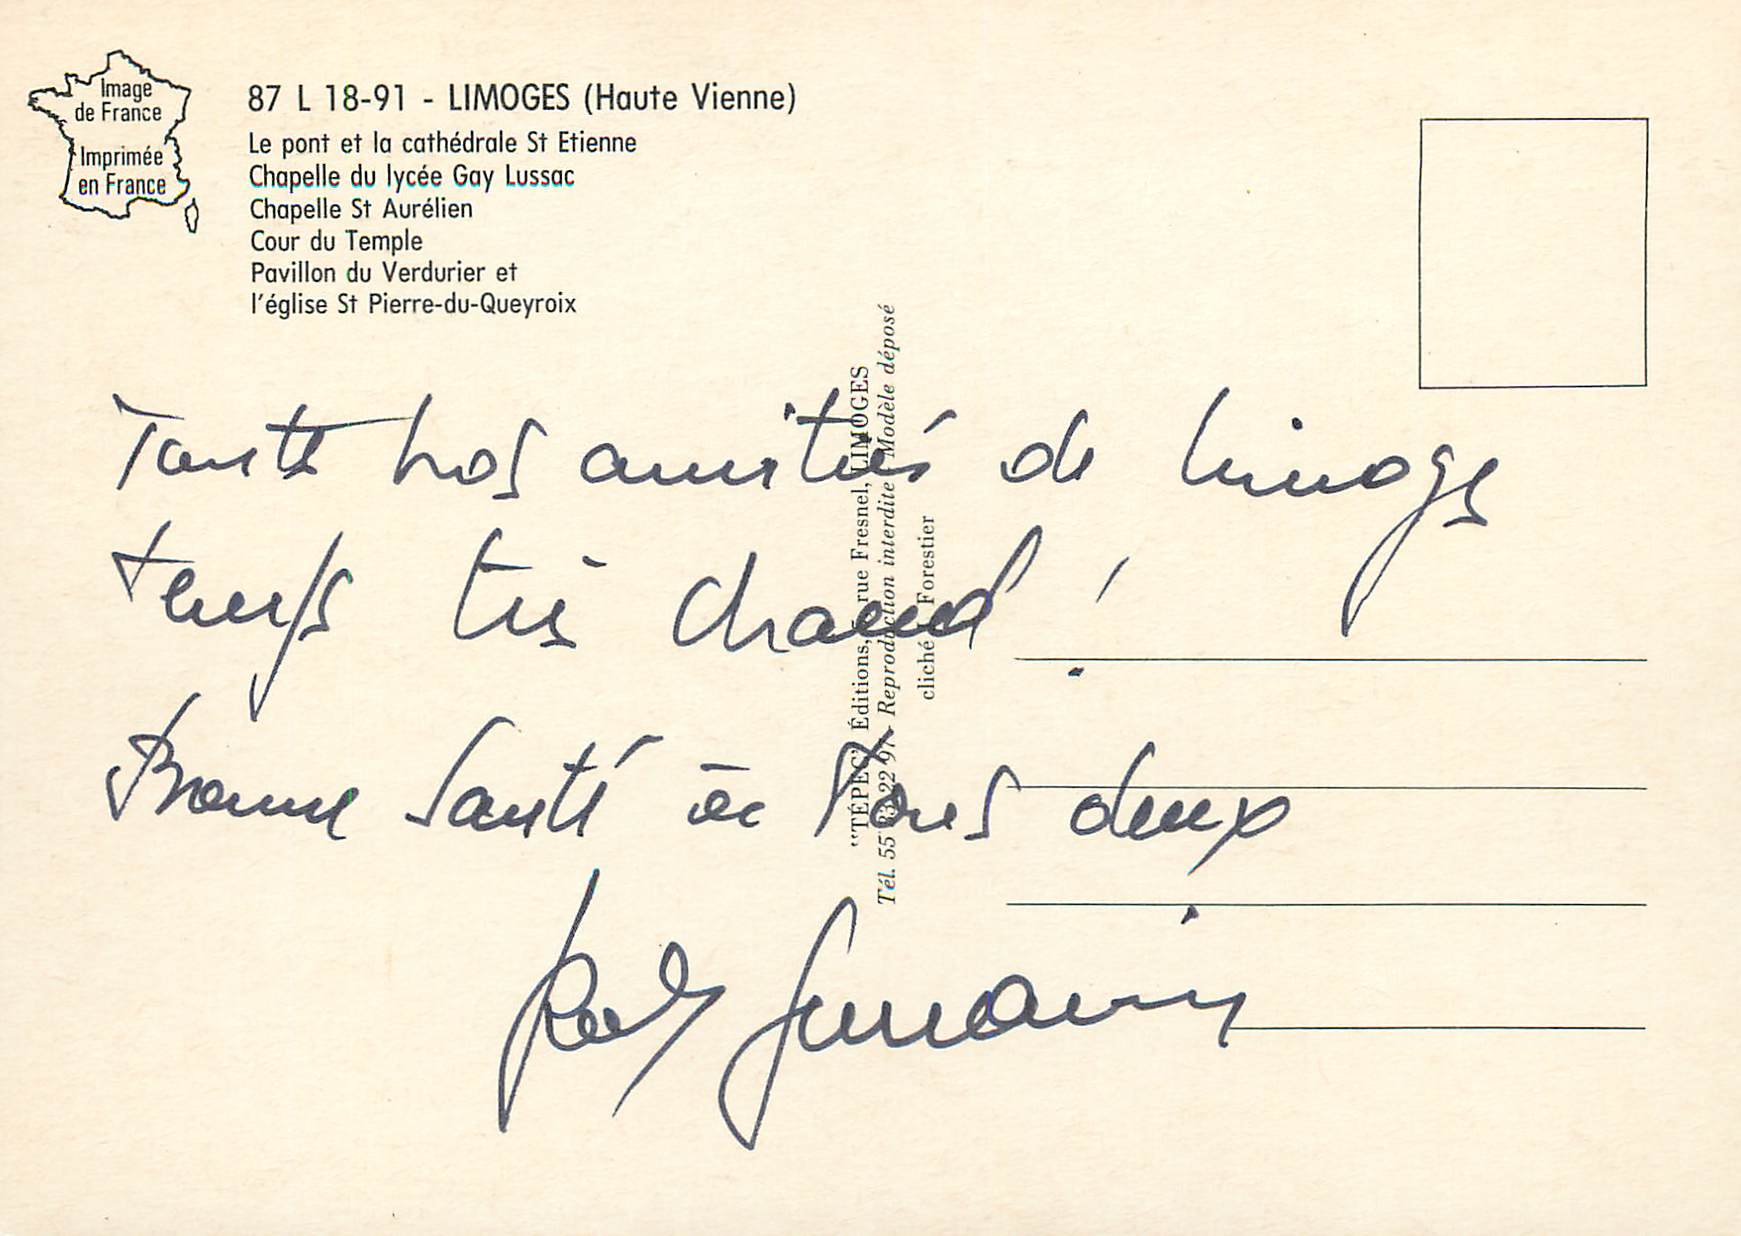 Image
de France
Imprimée
en France
87 L 18-91 - LIMOGES (Haute Vienne)
Le pont et la cathédrale St Etienne
Chapelle du lycée Gay Lussac
Chapelle St Aurélien
Cour du Temple
Pavillon du Verdurier et
l'église St Pierre-du-Queyroix
Toute nos amitiés de Limoges
temps très chaud !
Bonne Santé à Tous deux
"TÉPEC" Éditions, rue Fresnel, LIMOGES
Tél. 55 33 22 97 - Reproduction interdite Modèle déposé
cliché Forestier